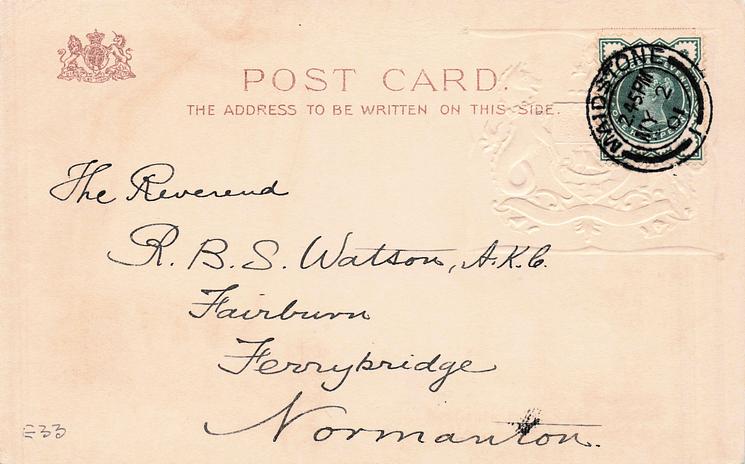 POST CARD.
THE ADDRESS TO BE WRITTEN ON THIS SIDE.
MAIDSTONE
2.45PM
MY 2
01
The Reverend
R. B. S. Watson, A.K.C.
Fairburn
Ferrybridge
Normanton.
E33